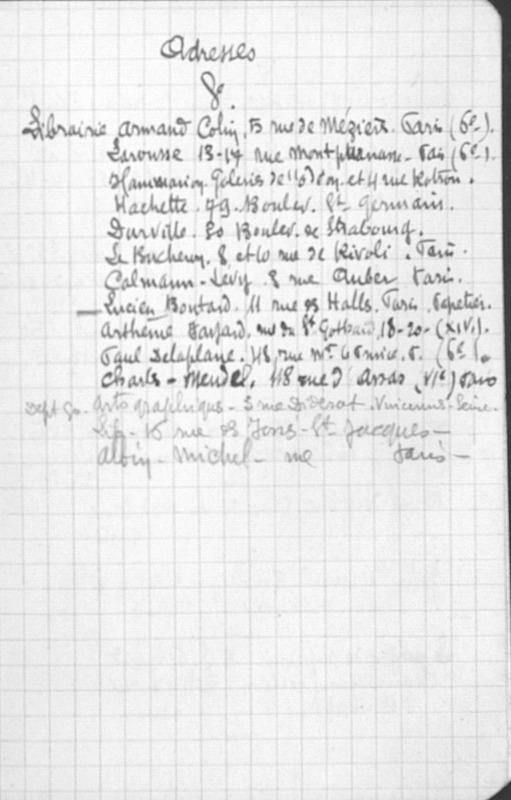 Adresses
de
Librairie Armand Colin, 5 rue de Mézières. Paris (6e).
Larousse 13-17 rue Montparnasse - Paris (6e).
Flammarion. Galeries de l'Odéon. et 4 rue Rotrou.
Hachette. 79. Boulev. St Germain.
Durville. 30 Boulev. de Strabourg.
8 et 10 rue de Rivoli. Paris.
Calmann-Levy 8 rue Auber Paris.
Lucien Bontard. 11 rue des Halls. Paris. Papetier.
Arthème Fayard, rue du St Gothard 18-20- (XIVe).
Paul Delaplane. 48, rue Mr le Prince. P. (6e).
Charles - Mendel, 118 rue d'Assas (VIe) Paris
Dept 90. Arts graphiques - 3 rue Diderot. Vincennes - Seine.
rue des St Jacques -
Albin - Michel - rue Paris -